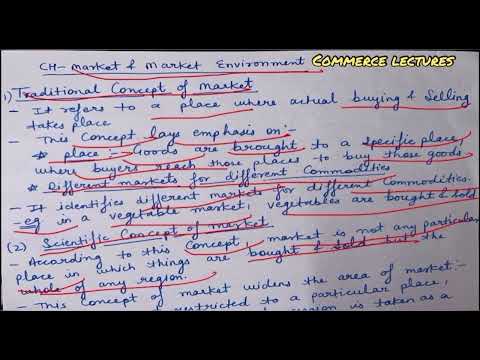 Commerce lectures
CH- Market & Market Environment
1) Traditional Concept of Market
- It refers to a place where actual buying & Selling
takes place
- This concept lays emphasis on:-
* place :- Goods are brought to a specific place,
where buyers reach those places to buy those goods
* Different markets for different Commodities
- It identifies different markets for different Commodities.
eg in a vegetable market, vegetables are bought & sold
(2) Scientific Concept of market
- According to this Concept, market is not any particular
place in which things are bought & sold but the
whole of any region.
- This Concept of market widens the area of market:-
restricted to a particular place,
is taken as a